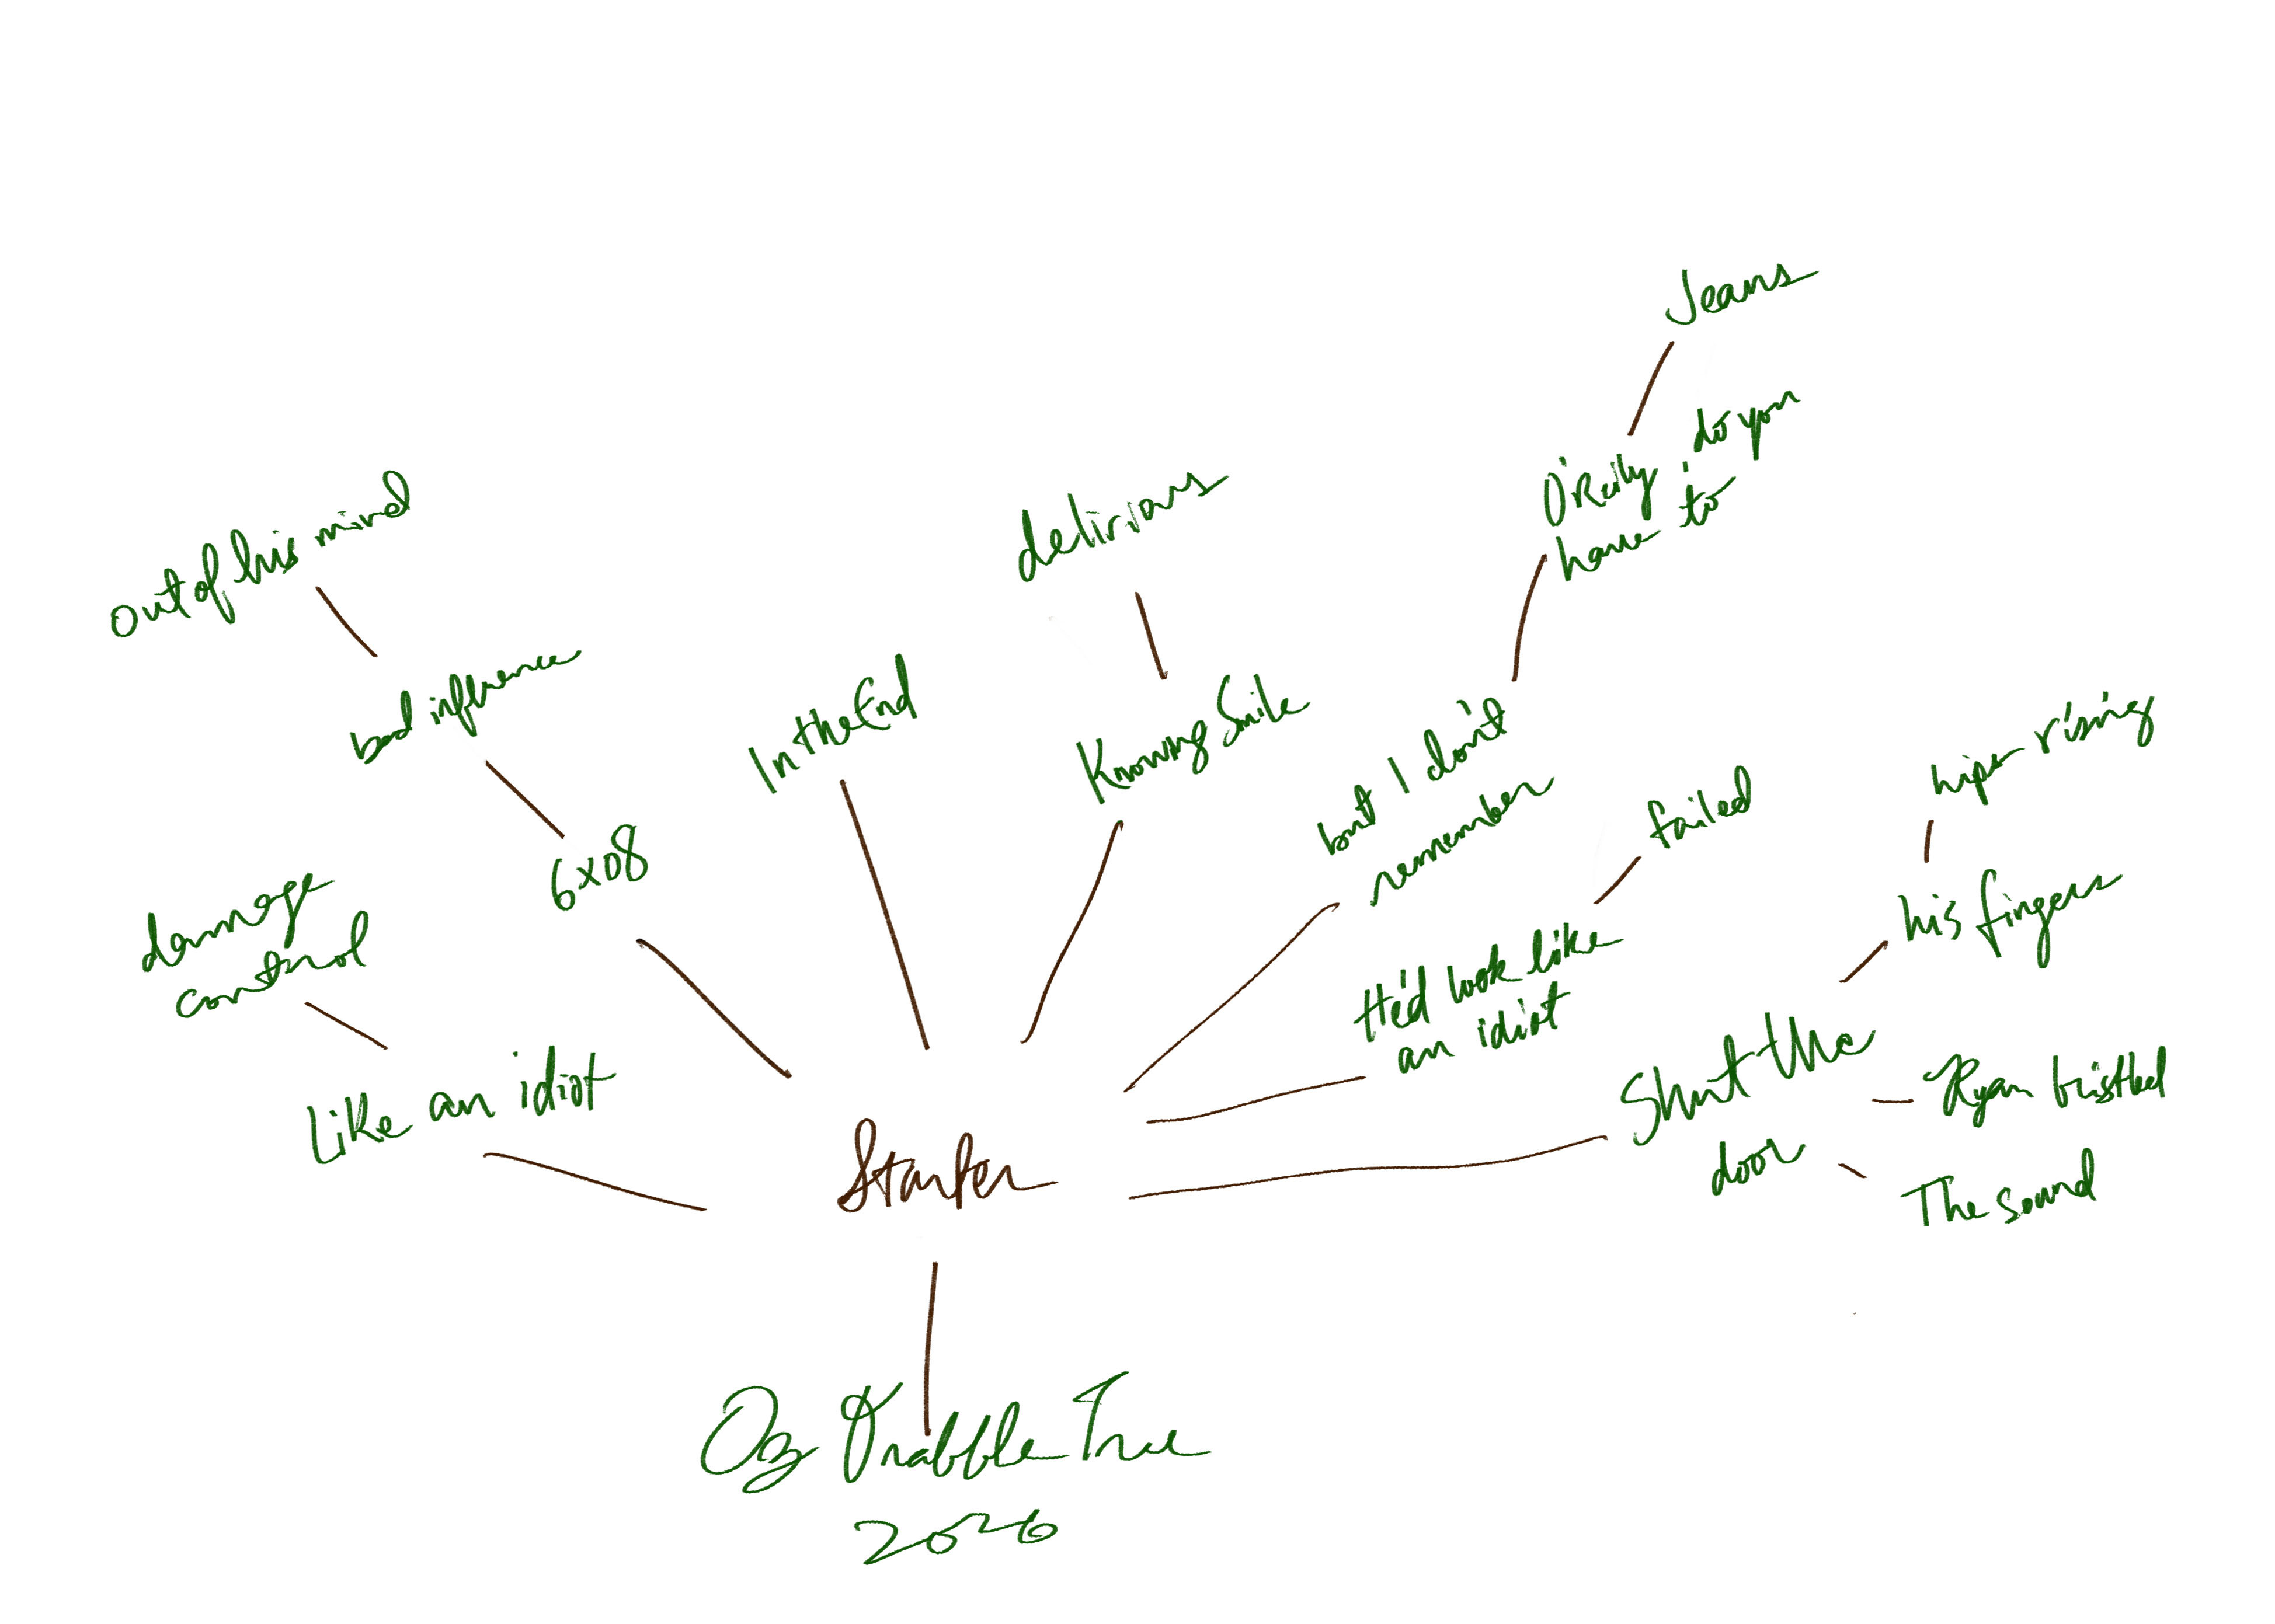 Jeans
O'Reily do you
have to
out of his mind
delirious
bad influence
In the End
Knowing Smile
but I don't
remember
hips rising
failed
6x08
damage
control
his fingers
He'd look like
an idiot
Like an idiot
Shut the
door
Ryan bristled
The sound
Starter
Oz Drabble Tree
2020